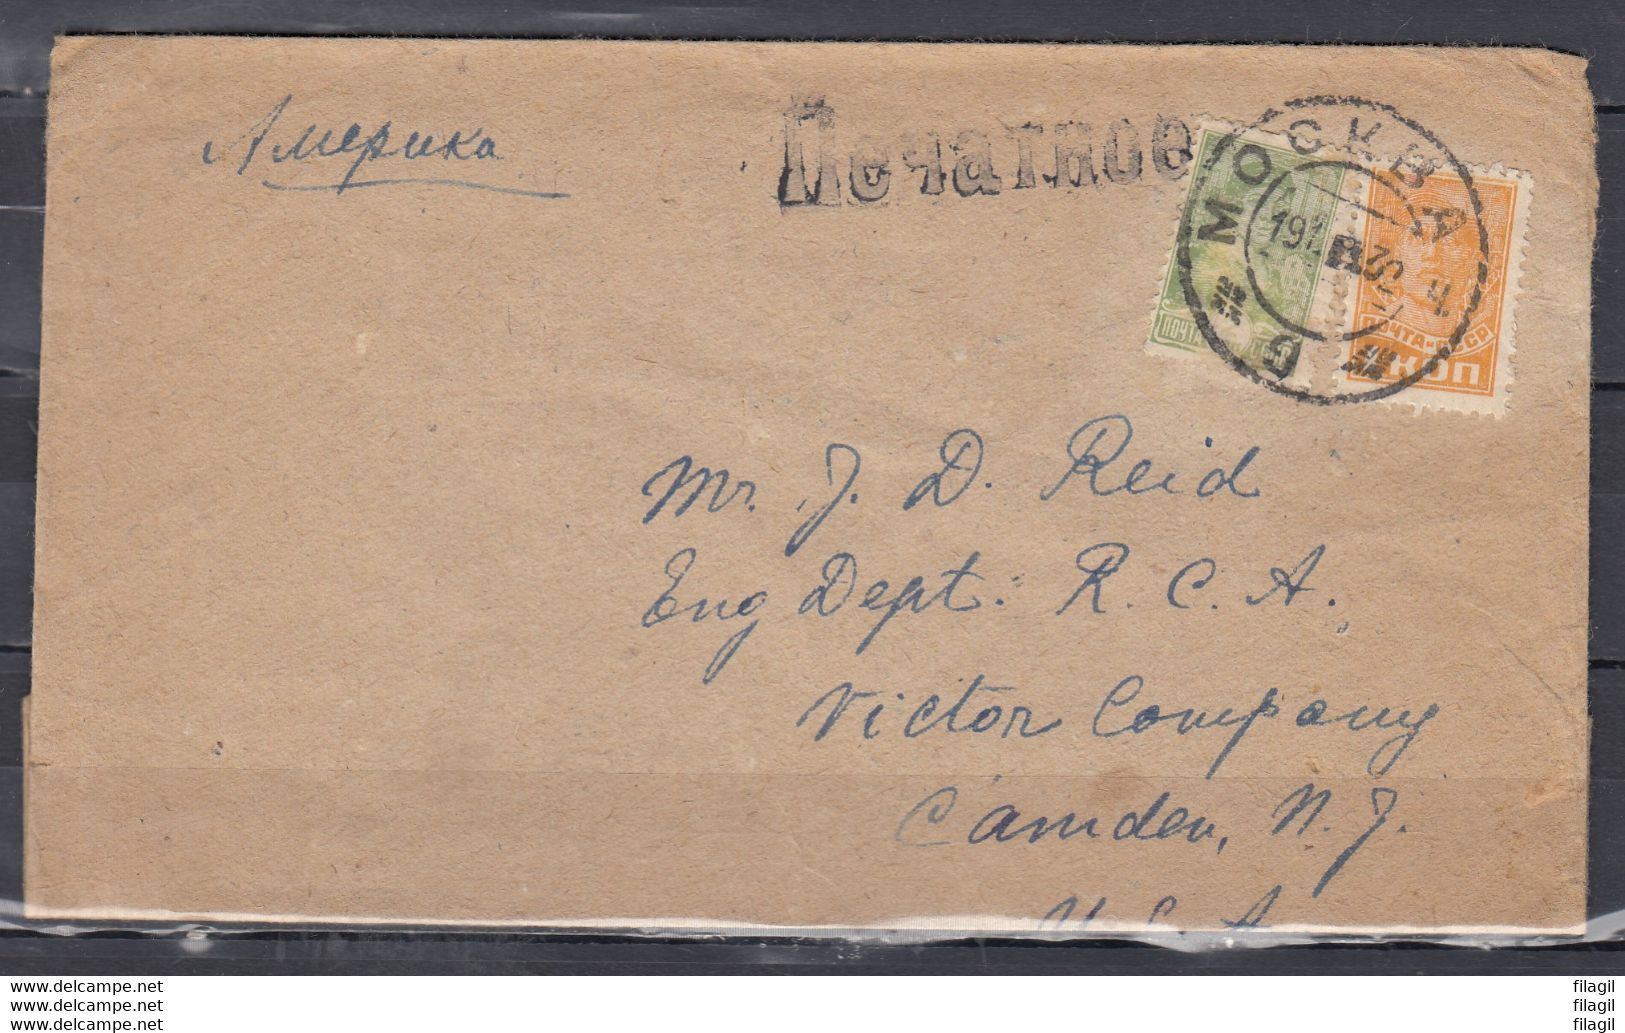 Америка
Печатное
МОСКВА
ПОЧТА
ПОЧТА-СССР
КОП
Mr. J. D. Reid
Eng Dept. R. C. A.
Victor Company
Camden, N. J.
U. S. A.
www.delcampe.net
www.delcampe.net
www.delcampe.net
filagil
filagil
filagil